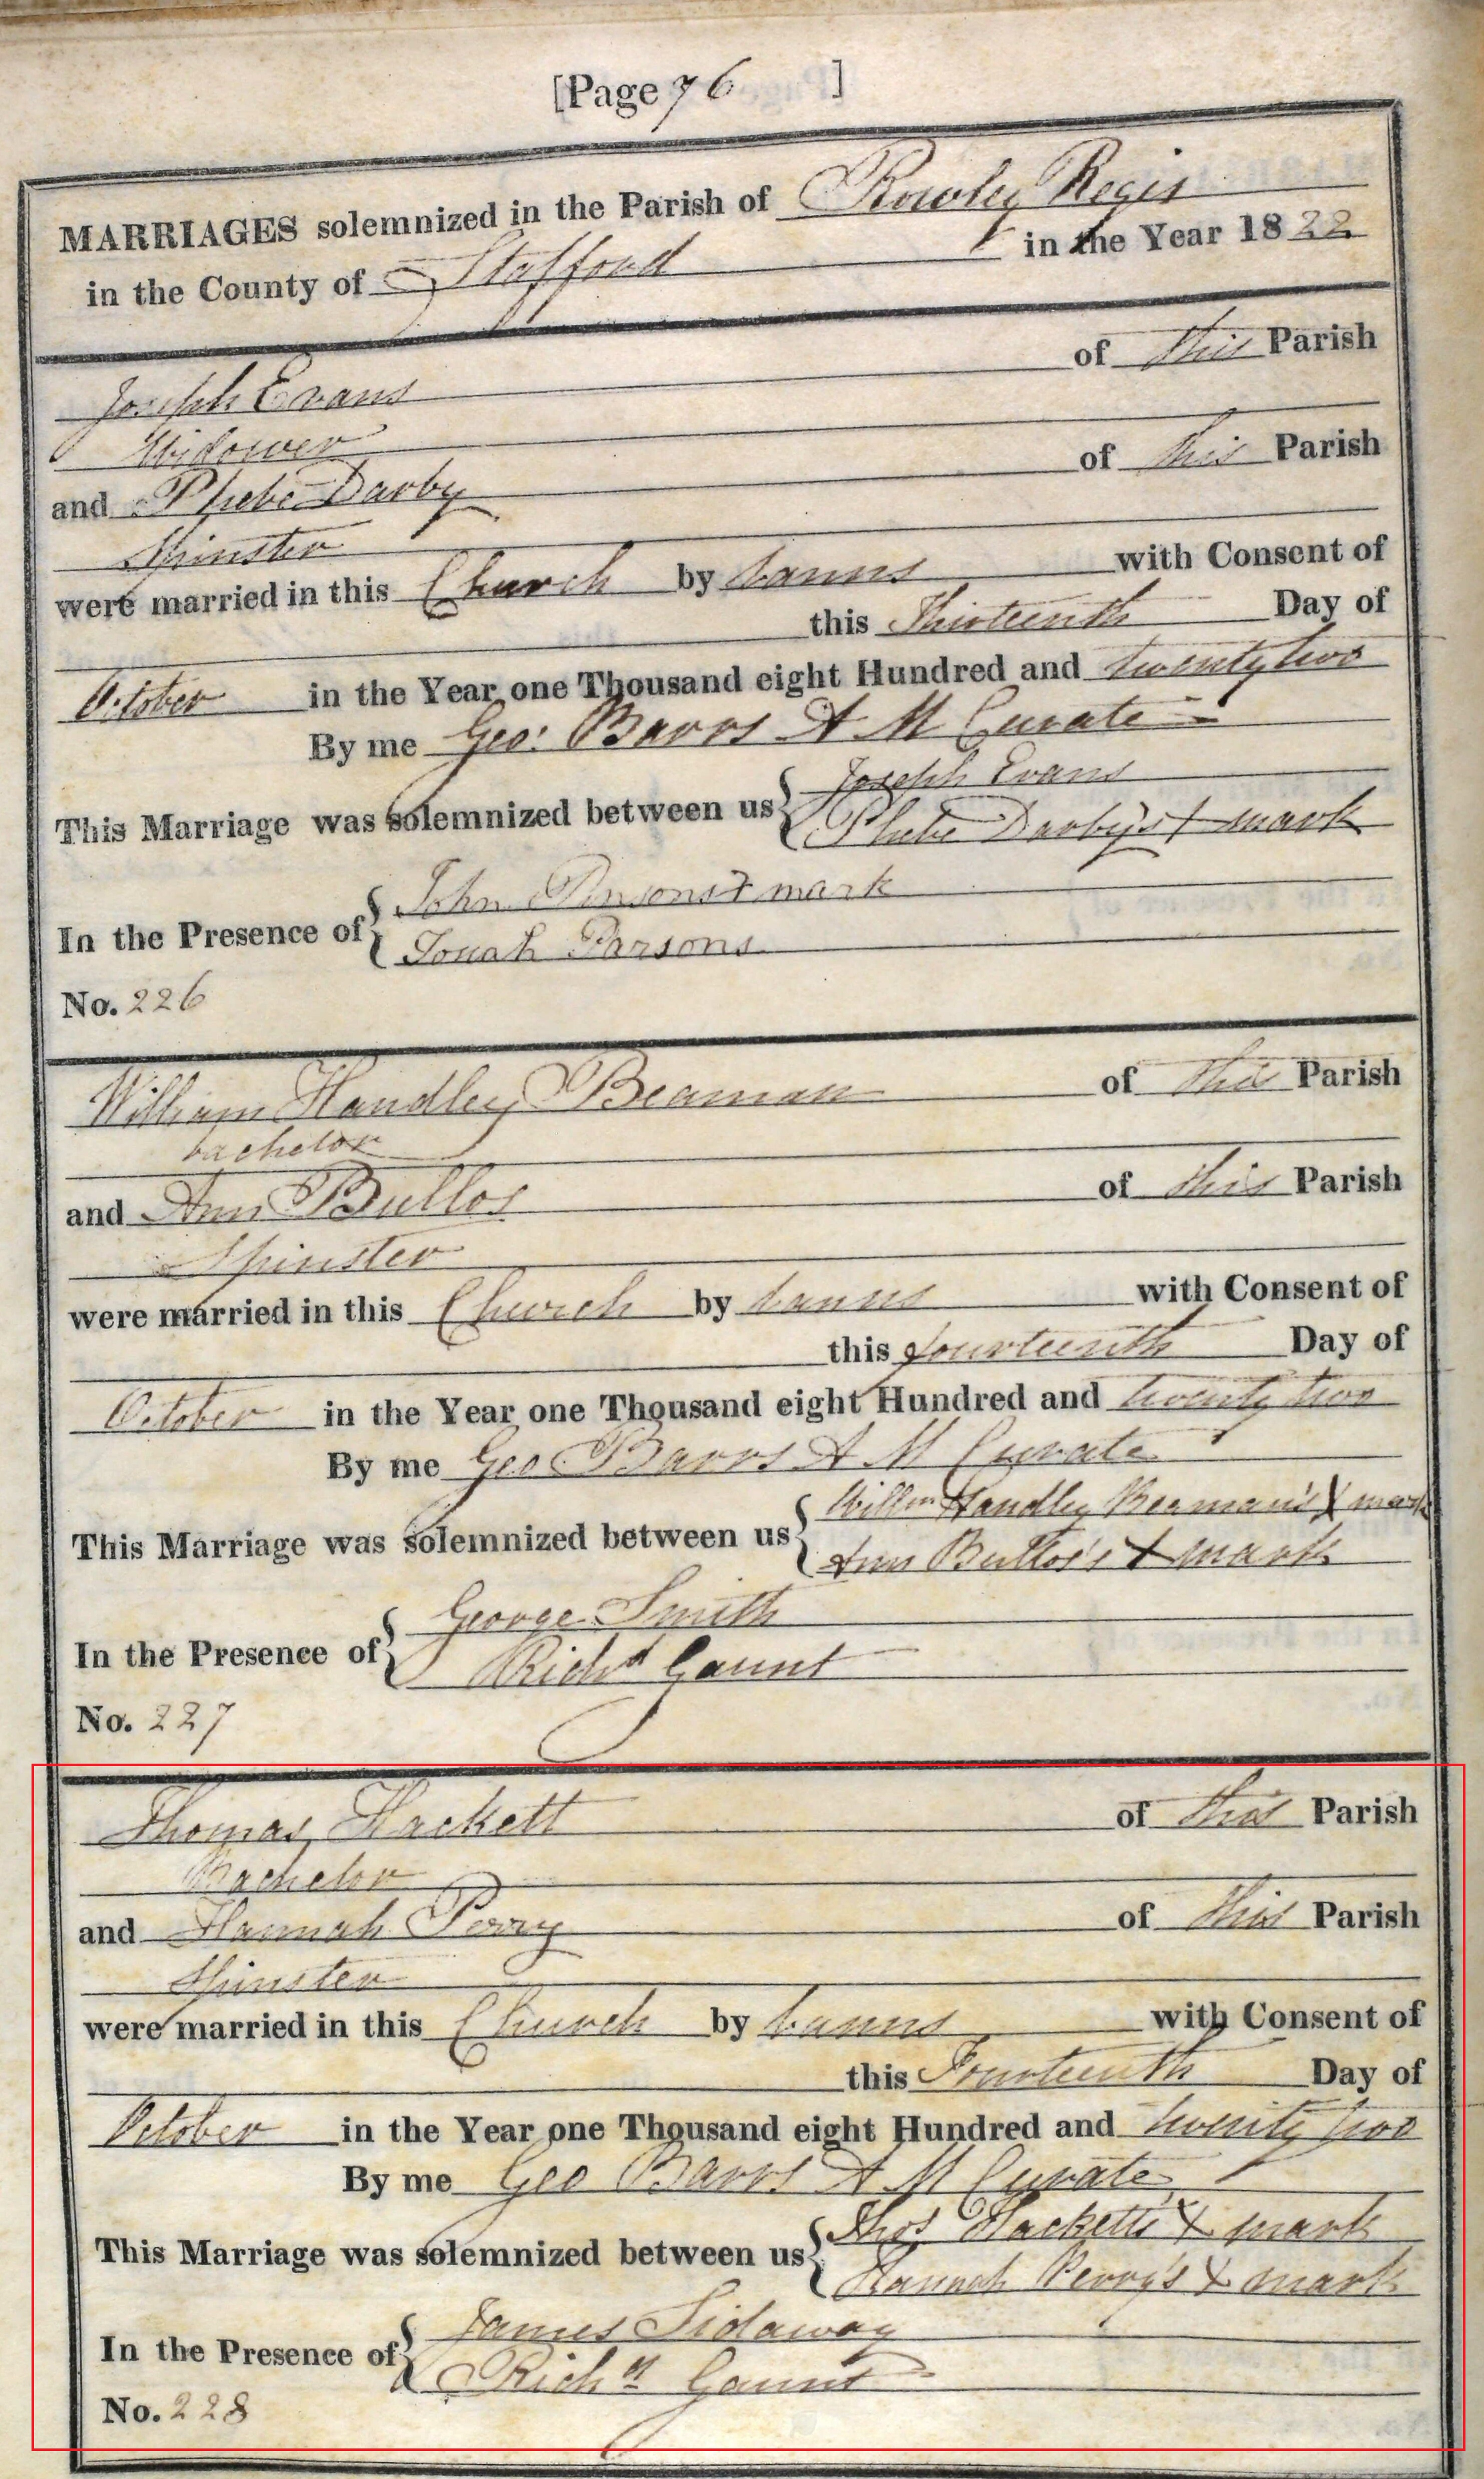 [Page 76 ]
MARRIAGES solemnized in the Parish of Rowley Regis
in the County of Stafford in the Year 1822
Joseph Evans of this Parish
Widower
and Phebe Darby of this Parish
Spinster
were married in this Church by banns with Consent of
this Thirteenth Day of
October in the Year one Thousand eight Hundred and twenty two
By me Geo: Barrs A M Curate
This Marriage was solemnized between us { Joseph Evans
Phebe Darby's + mark
In the Presence of { John Parsons + mark
Jonah Parsons
No. 226
William Handley Beaman of this Parish
bachelor
and Ann Bullos of this Parish
Spinster
were married in this Church by banns with Consent of
this fourteenth Day of
October in the Year one Thousand eight Hundred and twenty two
By me Geo Barrs A M Curate
This Marriage was solemnized between us { Willm Handley Beaman's X mark
Ann Bullos's + mark
In the Presence of { George Smith
Richd Gaunt
No. 227
Thomas Hackett of this Parish
Bachelor
and Hannah Perry of this Parish
Spinster
were married in this Church by banns with Consent of
this Fourteenth Day of
October in the Year one Thousand eight Hundred and twenty two
By me Geo Barrs A M Curate
This Marriage was solemnized between us { Thos Hackett's X mark
Hannah Perry's X mark
In the Presence of { James Sidaway
Richd Gaunt
No. 228